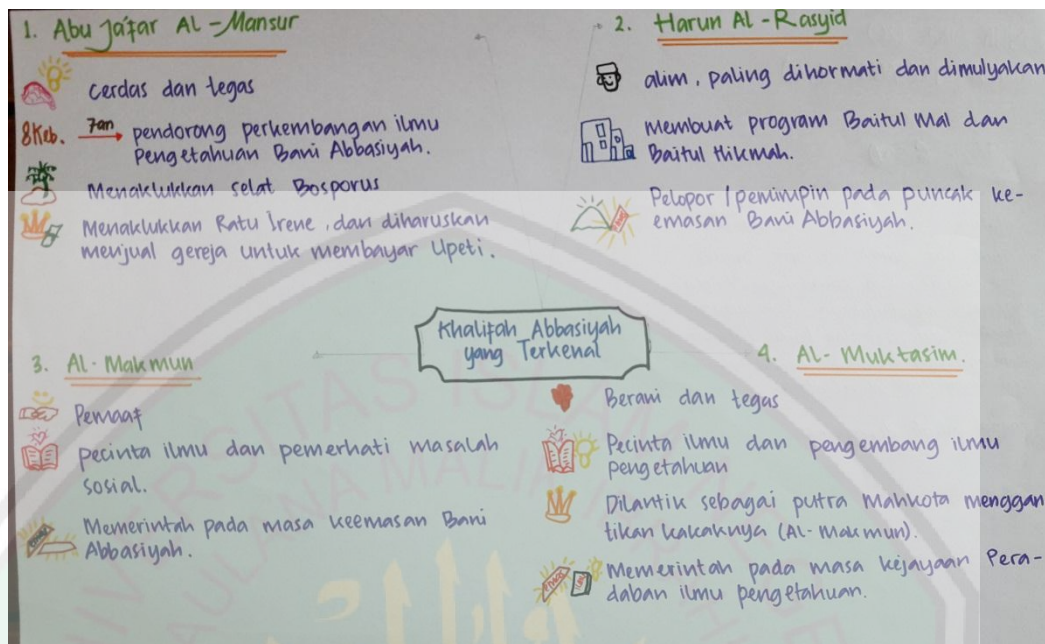 1. Abu Ja'far Al-Mansur
cerdas dan tegas
8Keb. 7an pendorong perkembangan ilmu
Pengetahuan Bani Abbasiyah.
Menaklukkan selat Bosporus
Menaklukkan Ratu Irene, dan diharuskan
menjual gereja untuk membayar upeti.
2. Harun Al-Rasyid
alim, paling dihormati dan dimulyakan
Membuat program Baitul Mal dan
Baitul Hikmah.
Pelopor/pemimpin pada puncak ke-
emasan Bani Abbasiyah.
Khalifah Abbasiyah
yang Terkenal
3. Al-Makmun
Pemaaf
pecinta ilmu dan pemerhati masalah
sosial.
Memerintah pada masa keemasan Bani
Abbasiyah.
4. Al-Muktasim.
Berani dan tegas
Pecinta ilmu dan pengembang ilmu
pengetahuan
Dilantik sebagai putra mahkota menggan
tikan kakaknya (Al-Makmun).
Memerintah pada masa kejayaan Pera-
daban ilmu pengetahuan.